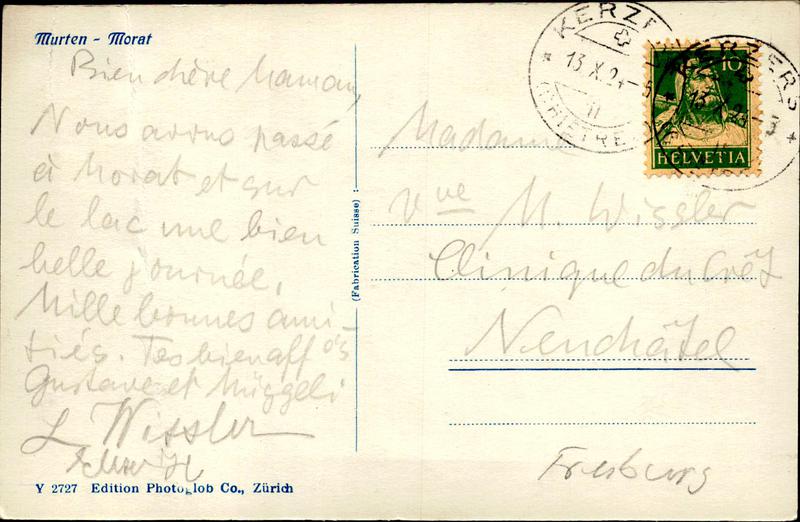 Murten - Morat
Bien chère Maman,
Nous avons passé
à Morat et sur
le lac une bien
belle journée.
Mille bonnes ami-
tiés. Tes bien aff os
Gustave et Müggeli
L Wissler
Y 2727 Edition Photoglob Co., Zürich
(Fabrication Suisse) :
KERZERS
13.X.24
10
HELVETIA
KERZERS
13.X.24
Madame
Vve M. Wissler
Clinique du Crêt
Neuchâtel
Freiburg